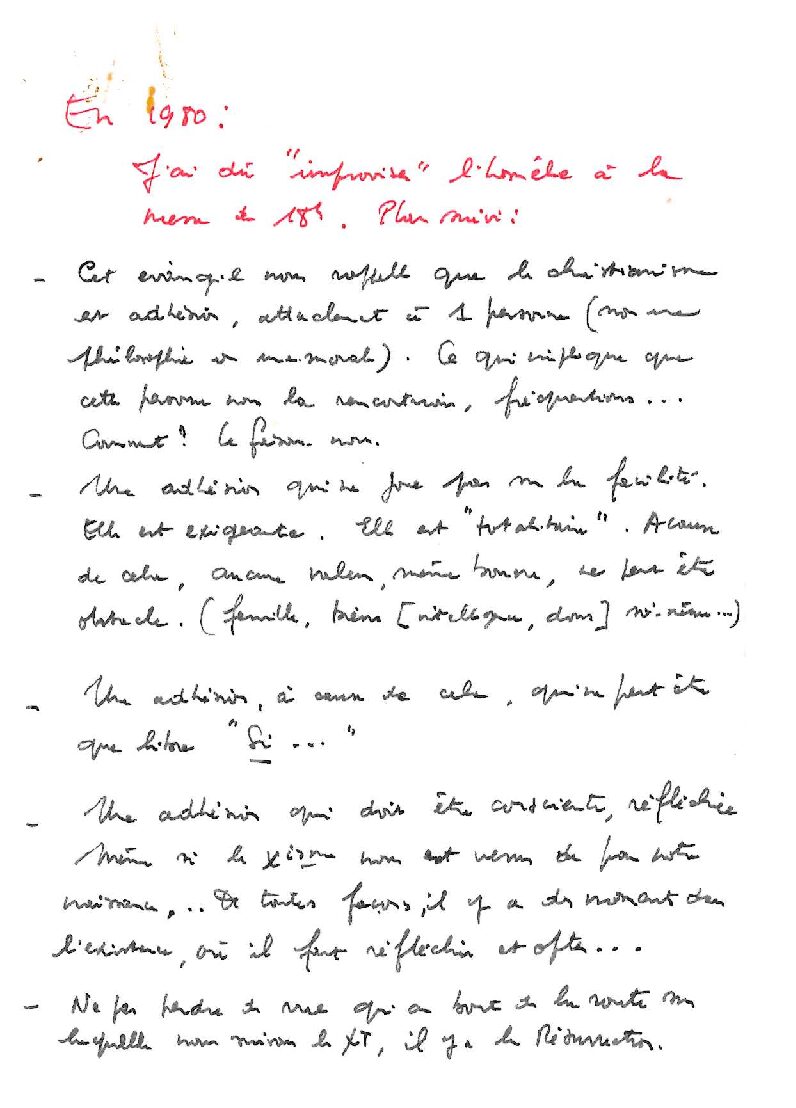 En 1980 :
J'ai dû "improviser" l'homélie à la
messe de 18h. Plan suivi :
- Cet évangile nous rappelle que le christianisme
est adhésion, attachement à 1 personne (non une
philosophie ou une morale). Ce qui implique que
cette personne nous la rencontrions, fréquentions...
Comment ? Le faisons-nous.
- Une adhésion qui ne joue pas sur la facilité.
Elle est exigeante. Elle est "totalitaire". A cause
de cela, aucune valeur, même bonne, ne peut être
obstacle. (famille, biens [intelligence, dons] soi-même...)
- Une adhésion, à cause de cela, qui ne peut être
que libre "Si ..."
- Une adhésion qui doit être consciente, réfléchie
Même si le Xisme nous est venu de par notre
naissance,... De toutes façons, il y a des moments dans
l'existence, où il faut réfléchir et opter...
- Ne pas perdre de vue qu'au bout de la route sur
laquelle nous suivons le XT, il y a la Résurrection.